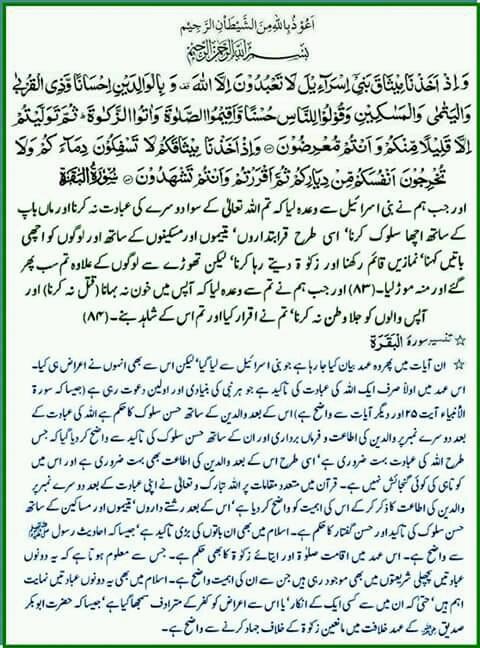 اَعُوْذُ بِاللّٰهِ مِنَ الشَّيْطٰنِ الرَّجِيْمِ
بِسْمِ اللّٰهِ الرَّحْمٰنِ الرَّحِيْمِ
وَ اِذْ اَخَذْنَا مِيْثَاقَ بَنِيْٓ اِسْرَآءِيْلَ لَا تَعْبُدُوْنَ اِلَّا اللّٰهَ وَ بِالْوَالِدَيْنِ اِحْسَانًا وَّ ذِي الْقُرْبٰى
وَ الْيَتٰمٰى وَ الْمَسٰكِيْنِ وَ قُوْلُوْا لِلنَّاسِ حُسْنًا وَّ اَقِيْمُوا الصَّلٰوةَ وَ اٰتُوا الزَّكٰوةَ ثُمَّ تَوَلَّيْتُمْ
اِلَّا قَلِيْلًا مِّنْكُمْ وَ اَنْتُمْ مُّعْرِضُوْنَ وَ اِذْ اَخَذْنَا مِيْثَاقَكُمْ لَا تَسْفِكُوْنَ دِمَآءَكُمْ وَ لَا
تُخْرِجُوْنَ اَنْفُسَكُمْ مِّنْ دِيَارِكُمْ ثُمَّ اَقْرَرْتُمْ وَ اَنْتُمْ تَشْهَدُوْنَ سُوْرَةُ الْبَقَرَة
اور جب ہم نے بنی اسرائیل سے وعدہ لیا کہ تم اللہ تعالیٰ کے سوا دوسرے کی عبادت نہ کرنا اور ماں باپ
کے ساتھ اچھا سلوک کرنا، اسی طرح قرابتداروں، یتیموں اور مسکینوں کے ساتھ اور لوگوں کو اچھی
باتیں کہنا، نمازیں قائم رکھنا اور زکوٰۃ دیتے رہا کرنا، لیکن تھوڑے سے لوگوں کے علاوہ تم سب پھر
گئے اور منہ موڑ لیا۔ (۸۳) اور جب ہم نے تم سے وعدہ لیا کہ آپس میں خون نہ بہانا (قتل نہ کرنا) اور
آپس والوں کو جلا وطن نہ کرنا، تم نے اقرار کیا اور تم اس کے شاہد بنے۔ (۸۴)
☆ تفسیر سورۃ البقرۃ
☆ ان آیات میں پھر وہ عہد بیان کیا جا رہا ہے جو بنی اسرائیل سے لیا گیا، لیکن اس سے بھی انہوں نے اعراض ہی کیا۔
اس عہد میں اولاً صرف ایک اللہ کی عبادت کی تاکید ہے جو ہر نبی کی بنیادی اور اولین دعوت رہی ہے (جیسا کہ سورۃ
الأنبياء آیت ۲۵ اور دیگر آیات سے واضح ہے) اس کے بعد والدین کے ساتھ حسن سلوک کا حکم ہے اللہ کی عبادت کے
بعد دوسرے نمبر پر والدین کی اطاعت و فرماں برداری اور ان کے ساتھ حسن سلوک کی تاکید سے واضح کر دیا گیا کہ جس
طرح اللہ کی عبادت بہت ضروری ہے، اسی طرح اس کے بعد والدین کی اطاعت بھی بہت ضروری ہے اور اس میں
کوتاہی کی کوئی گنجائش نہیں ہے۔ قرآن میں متعدد مقامات پر اللہ تبارک وتعالیٰ نے اپنی عبادت کے بعد دوسرے نمبر پر
والدین کی اطاعت کا ذکر کر کے اس کی اہمیت کو واضح کر دیا ہے، اس کے بعد رشتے داروں، یتیموں اور مساکین کے ساتھ
حسن سلوک کی تاکید اور حسن گفتار کا حکم ہے۔ اسلام میں بھی ان باتوں کی بڑی تاکید ہے، جیسا کہ احادیث رسول ﷺ
سے واضح ہے۔ اس عہد میں اقامت صلوٰۃ اور ایتائے زکوٰۃ کا بھی حکم ہے۔ جس سے معلوم ہوتا ہے کہ یہ دونوں
عبادتیں پچھلی شریعتوں میں بھی موجود رہی ہیں جن سے ان کی اہمیت واضح ہے۔ اسلام میں بھی یہ دونوں عبادتیں نہایت
اہم ہیں، حتیٰ کہ ان میں سے کسی ایک کے انکار، یا اس سے اعراض کو کفر کے مترادف سمجھا گیا ہے، جیسا کہ حضرت ابوبکر
صدیق کے عہد خلافت میں مانعین زکوٰۃ کے خلاف جہاد کرنے سے واضح ہے۔